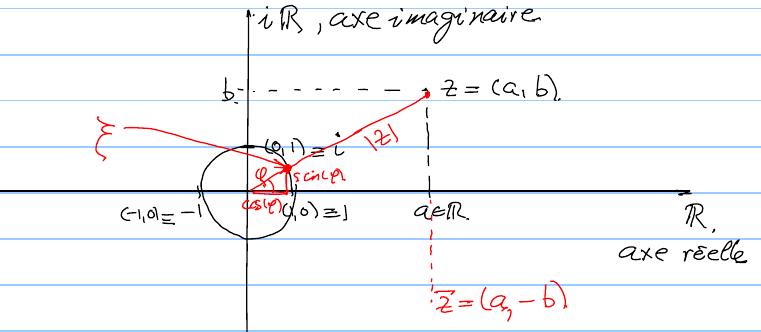 iℝ, axe imaginaire
b
z = (a, b).
ξ
(0,1) ≡ i
|z|
φ
sin(φ)
cos(φ)
(-1,0) ≡ -1
(1,0) ≡ 1
a∈ℝ.
ℝ,
axe réelle
z̅ = (a, -b)